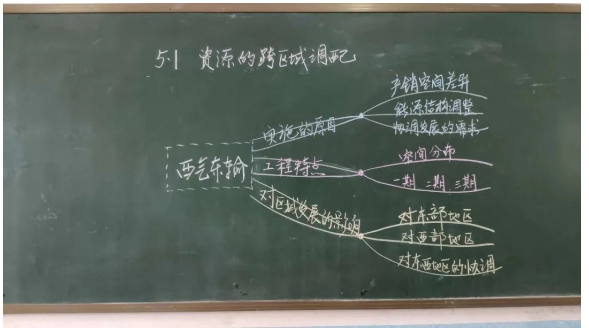 5.1 资源的跨区域调配
西气东输
实施的原因
产销空间差异
能源结构调整
协调发展的需求
工程特点
空间分布
一期 二期 三期
对区域发展的影响
对东部地区
对西部地区
对东西地区的协调